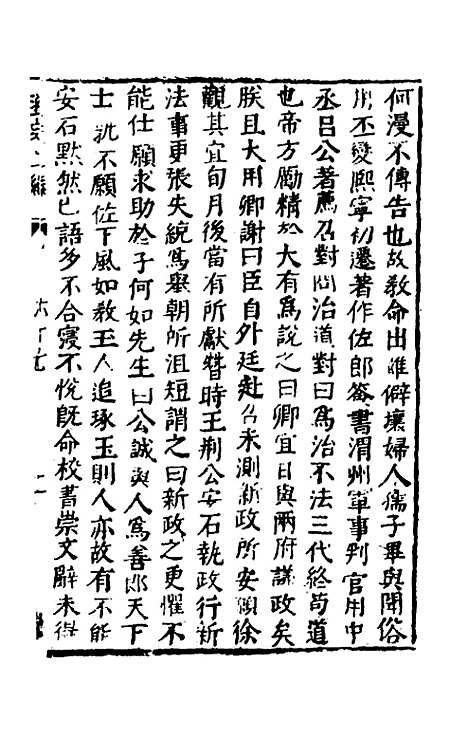 何漫不傳告也故教命出雖僻壤婦人孺子畢與聞俗
用丕變熙寧初遷著作佐郎簽書渭州軍事判官用中
丞呂公著薦召對問治道對曰爲治不法三代終苟道
也帝方勵精於大有爲說之曰卿宜日與兩府議政矣
朕且大用卿謝曰臣自外廷赴召未測新政所安願徐
觀其宜旬月後當有所獻替時王荆公安石執政行新
法事更張失統爲舉朝所沮短謂之曰新政之更懼不
能仕願求助於子何如先生曰公誠與人爲善郎天下
士孰不願佐下風如教玉人追琢玉則人亦故有不能
安石默然已語多不合寖不悅旣命校書崇文辭未得